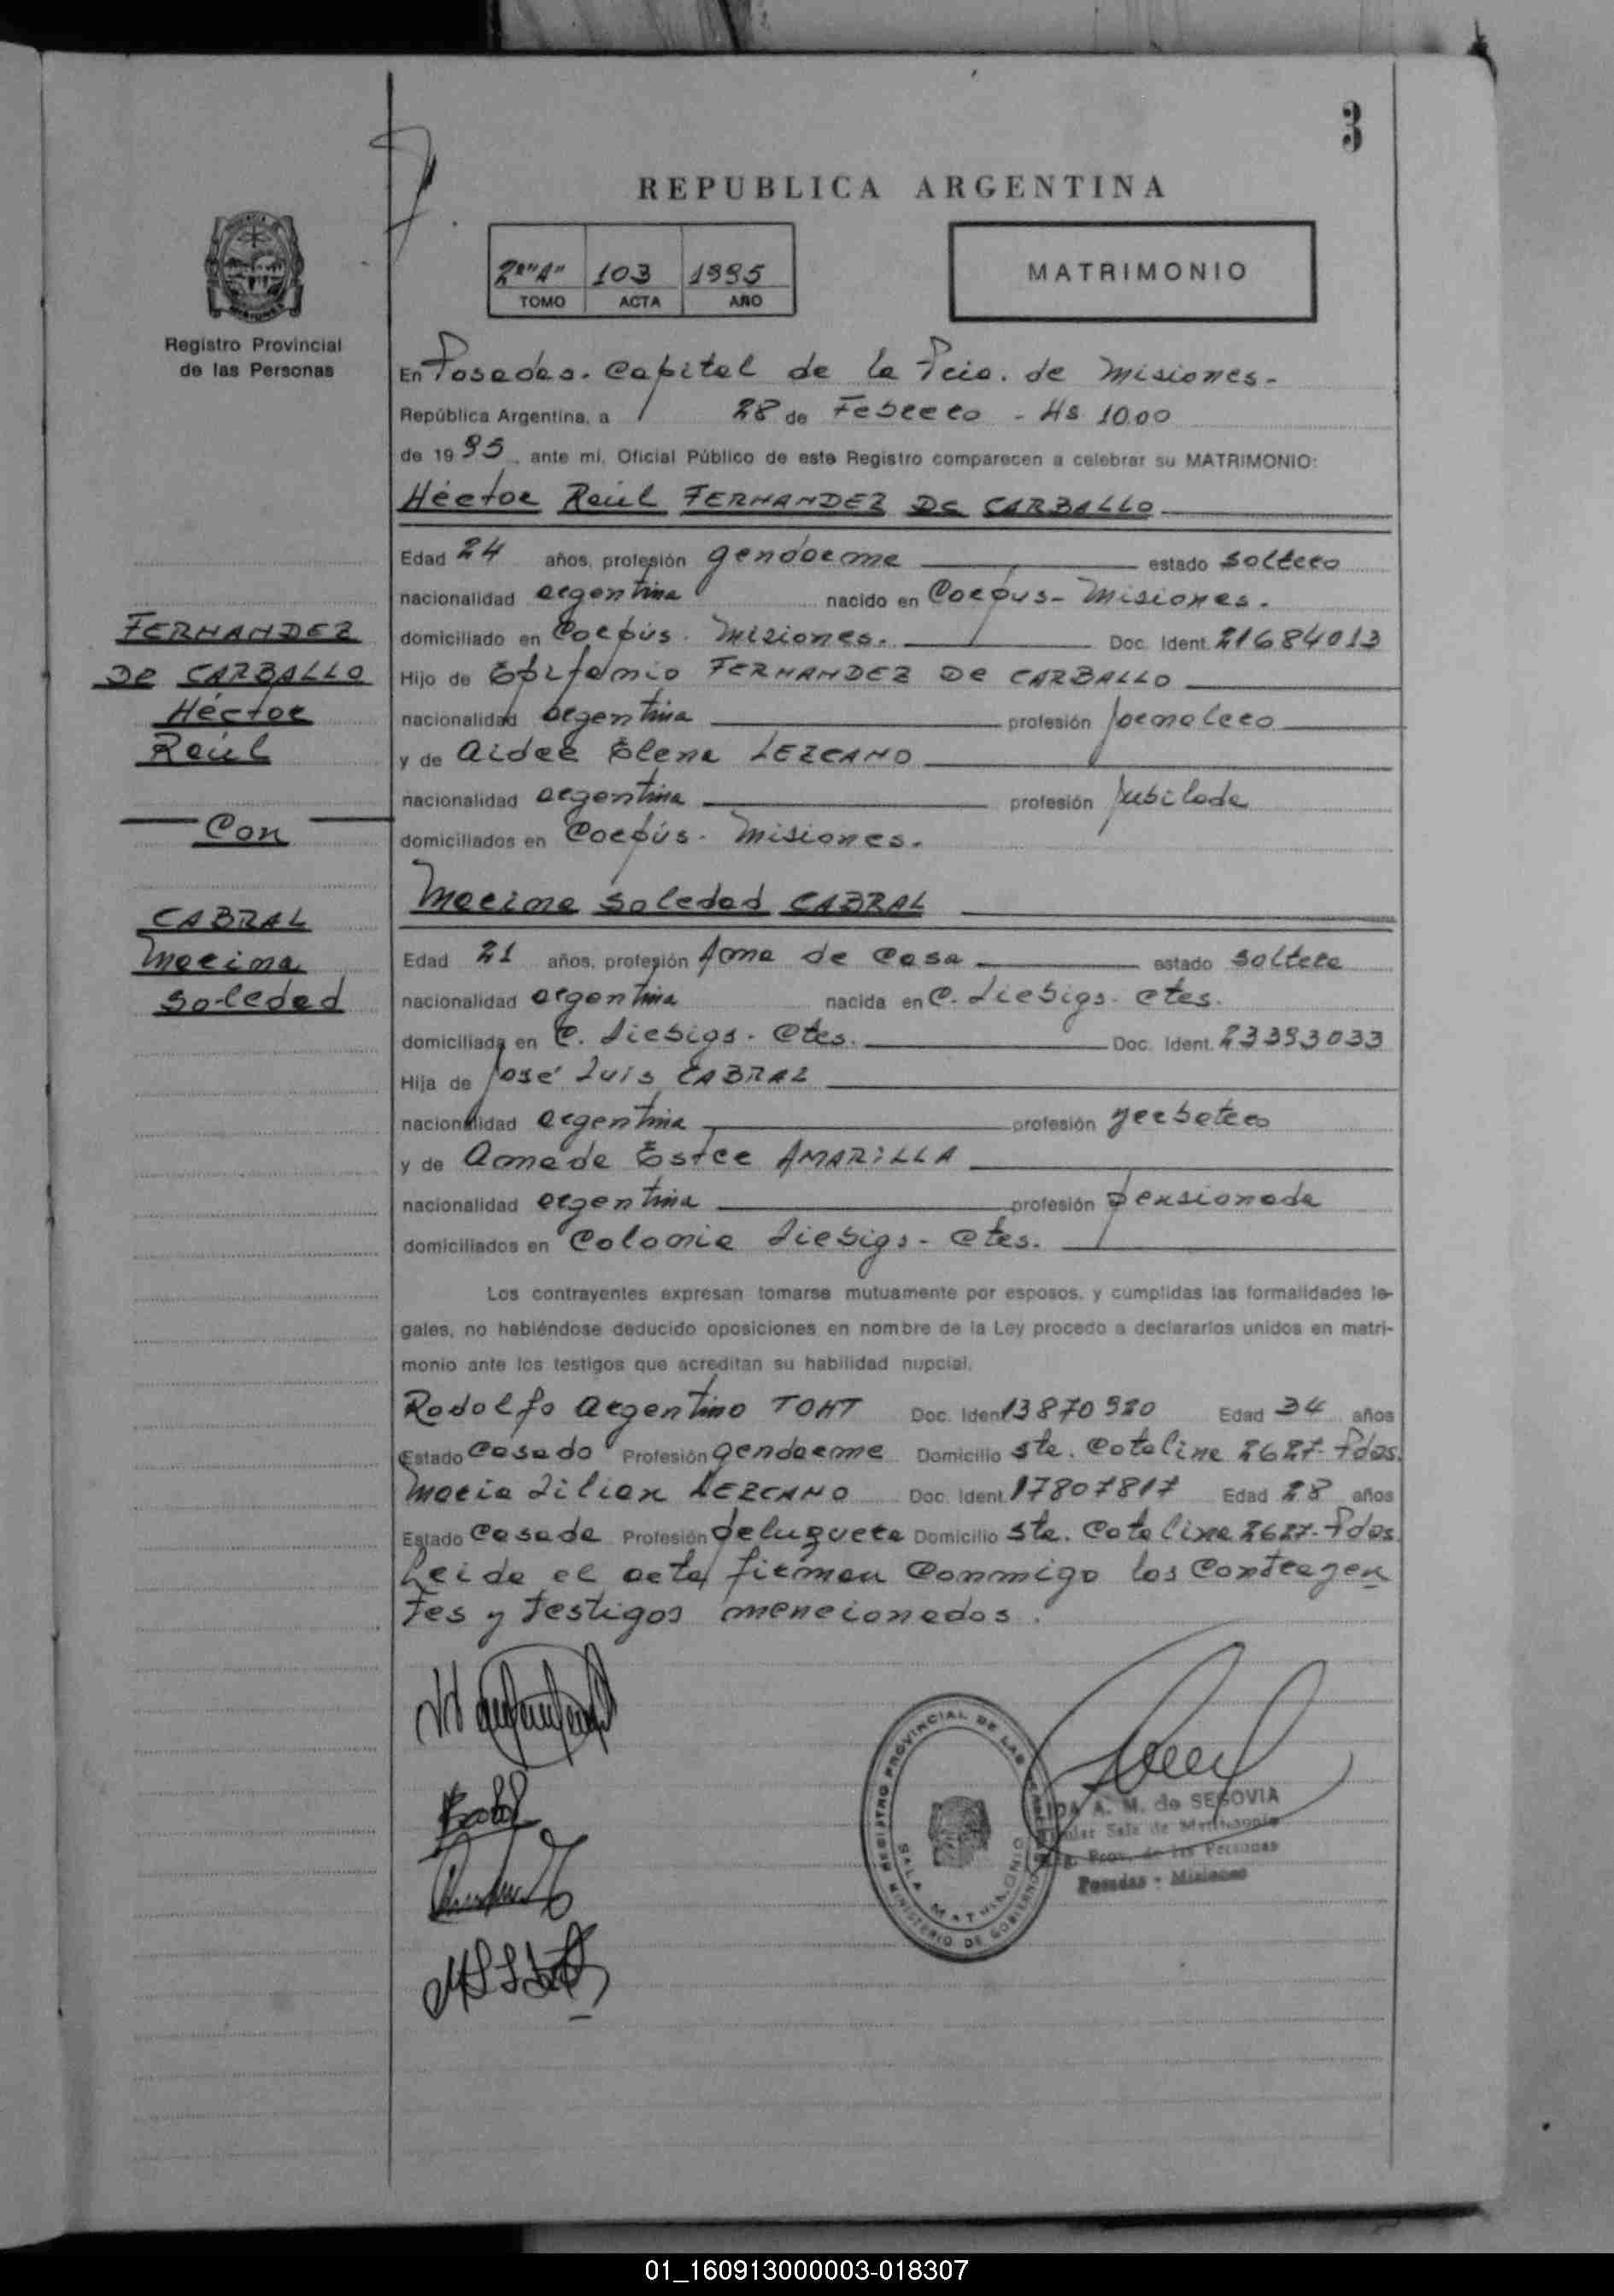 3
REPUBLICA ARGENTINA
2º "A" 103 1995
TOMO ACTA AÑO
MATRIMONIO
Registro Provincial
de las Personas
En Posadas. Capital de la Pcia. de Misiones-
República Argentina, a 28 de Febrero - Hs 10.00
de 1995, ante mi, Oficial Público de este Registro comparecen a celebrar su MATRIMONIO:
Héctor Raúl FERNANDEZ DE CARBALLO
Edad 24 años, profesión gendarme estado soltero
nacionalidad argentina nacido en Corpus- Misiones.
domiciliado en Corpus. Misiones. Doc. Ident. 21684013
Hijo de Epifanio FERNANDEZ DE CARBALLO
nacionalidad argentina profesión jornalero
y de Aidee Elena LEZCANO
nacionalidad argentina profesión jubilada
domiciliados en Corpús. Misiones.
FERNANDEZ
DE CARBALLO
Héctor
Raúl
Con
CABRAL
Marina
Soledad
Marina Soledad CABRAL
Edad 21 años, profesión Ama de Casa estado soltera
nacionalidad argentina nacida en C. Liebigs. Ctes.
domiciliada en C. Liebigs. Ctes. Doc. Ident. 23393033
Hija de José Luis CABRAL
nacionalidad argentina profesión yerbatero
y de Amada Ester AMARILLA
nacionalidad argentina profesión pensionada
domiciliados en Colonia Liebigs- Ctes.
Los contrayentes expresan tomarse mutuamente por esposos, y cumplidas las formalidades le-
gales, no habiéndose deducido oposiciones en nombre de la Ley procedo a declararlos unidos en matri-
monio ante los testigos que acreditan su habilidad nupcial.
Rodolfo Argentino TONT Doc. Iden 13870920 Edad 34 años
Estado Casado Profesión gendarme Domicilio Sta. Catalina 2627- Pdas.
Maria Lilian LEZCANO Doc. Ident. 17807817 Edad 28 años
Estado Casada Profesión peluquera Domicilio Sta. Catalina 2627- Pdas.
Leida el acta firman conmigo los contrayen
tes y testigos mencionados.
REGISTRO PROVINCIAL DE LAS
SALA MATRIMONIO
MINISTERIO DE GOBIERNO
A. M. de SEGOVIA
Sala de Matrimonio
Prov. de las Personas
Posadas - Misiones
01_160913000003-018307